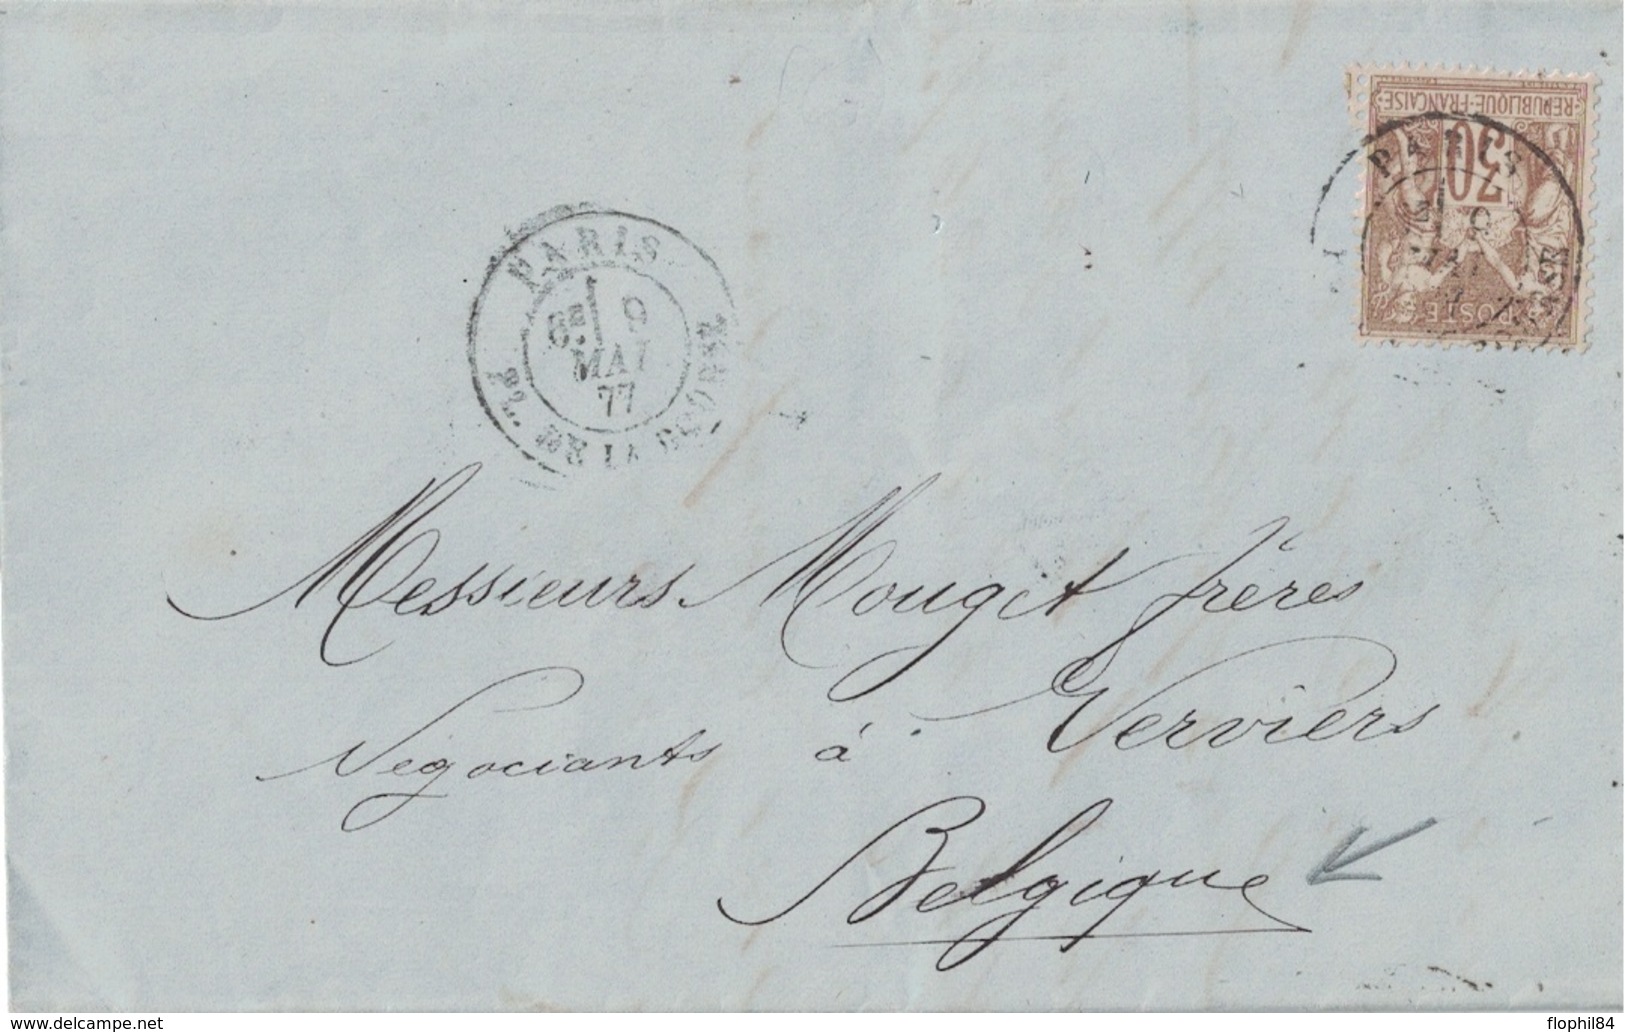 REPUBLIQUE-FRANÇAISE
30
POSTE
PARIS
9
MAI
PARIS
6E 9
MAI
77
PL. DE LA BOURSE
Messieurs Mouget frères
Négociants à Verviers
Belgique
delcampe.net
flophil84